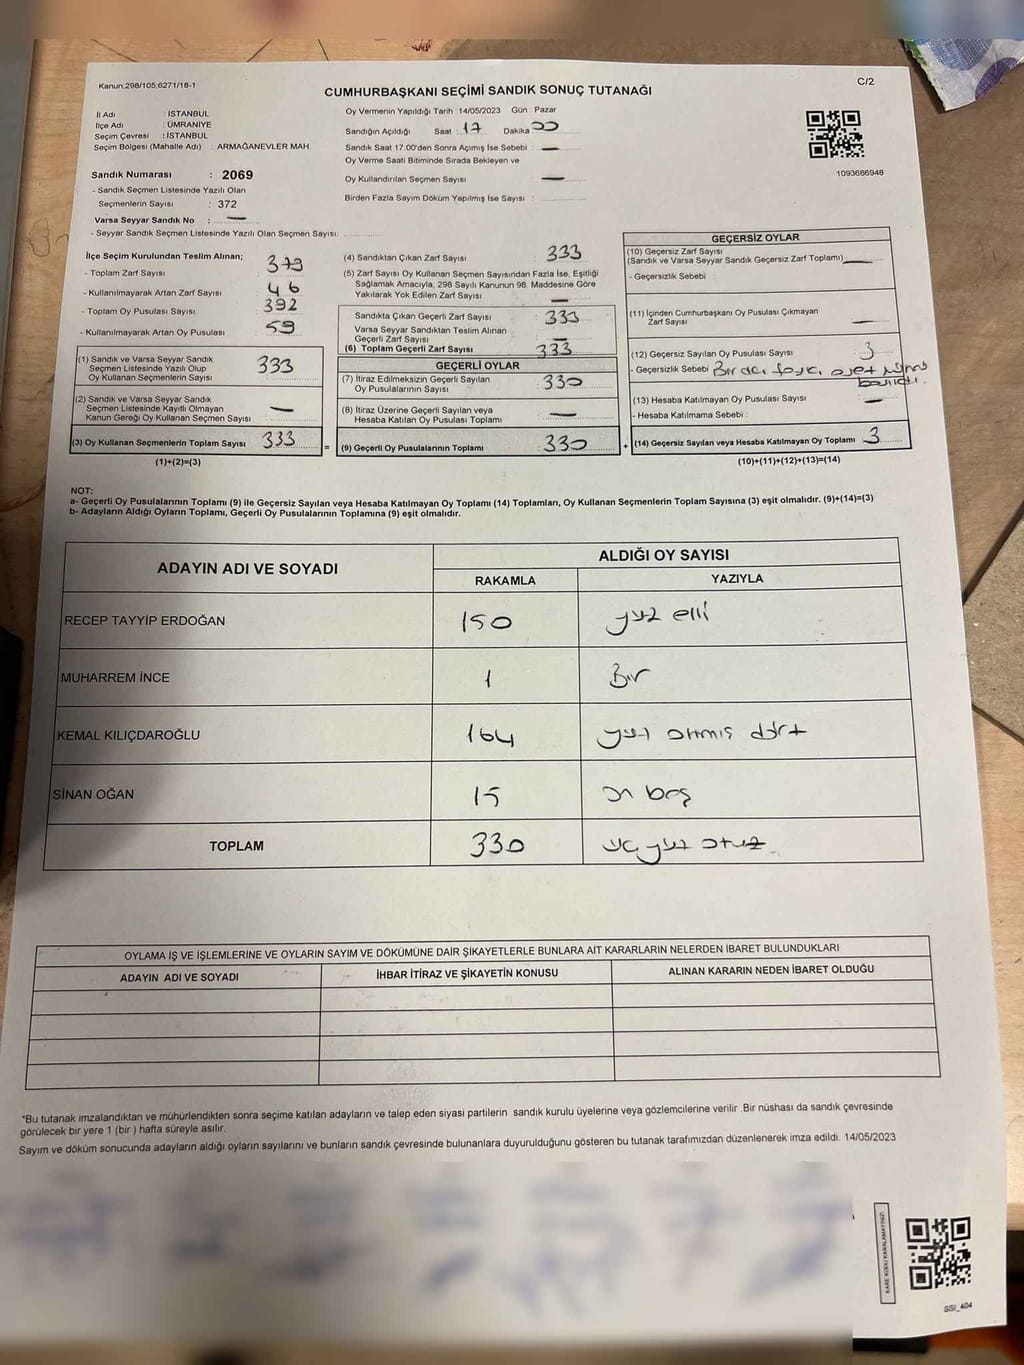 Kanun:298/105;6271/18-1
C/2
CUMHURBAŞKANI SEÇİMİ SANDIK SONUÇ TUTANAĞI
İl Adı : İSTANBUL
İlçe Adı : ÜMRANİYE
Seçim Çevresi : İSTANBUL
Seçim Bölgesi (Mahalle Adı) : ARMAĞANEVLER MAH.
Sandık Numarası : 2069
- Sandık Seçmen Listesinde Yazılı Olan
Seçmenlerin Sayısı : 372
Varsa Seyyar Sandık No : —
- Seyyar Sandık Seçmen Listesinde Yazılı Olan Seçmen Sayısı:
Oy Vermenin Yapıldığı Tarih : 14/05/2023 Gün : Pazar
Sandığın Açıldığı Saat : 17 Dakika 00
Sandık Saat 17.00'den Sonra Açımış İse Sebebi : —
Oy Verme Saati Bitiminde Sırada Bekleyen ve
Oy Kullandırılan Seçmen Sayısı : —
Birden Fazla Sayım Döküm Yapılmış İse Sayısı :
1093686948
İlçe Seçim Kurulundan Teslim Alınan;
- Toplam Zarf Sayısı : 379
- Kullanılmayarak Artan Zarf Sayısı : 46
- Toplam Oy Pusulası Sayısı : 392
- Kullanılmayarak Artan Oy Pusulası : 59
(1) Sandık ve Varsa Seyyar Sandık
Seçmen Listesinde Yazılı Olup
Oy Kullanan Seçmenlerin Sayısı : 333
(2) Sandık ve Varsa Seyyar Sandık
Seçmen Listesinde Kayıtlı Olmayan
Kanun Gereği Oy Kullanan Seçmen Sayısı : —
(3) Oy Kullanan Seçmenlerin Toplam Sayısı : 333
(1)+(2)=(3)
(4) Sandıktan Çıkan Zarf Sayısı : 333
(5) Zarf Sayısı Oy Kullanan Seçmen Sayısından Fazla İse, Eşitliği
Sağlamak Amacıyla, 298 Sayılı Kanunun 98. Maddesine Göre
Yakılarak Yok Edilen Zarf Sayısı : —
Sandıkta Çıkan Geçerli Zarf Sayısı : 333
Varsa Seyyar Sandıktan Teslim Alınan
Geçerli Zarf Sayısı : —
(6) Toplam Geçerli Zarf Sayısı : 333
GEÇERLİ OYLAR
(7) İtiraz Edilmeksizin Geçerli Sayılan
Oy Pusulasının Sayısı : 330
(8) İtiraz Üzerine Geçerli Sayılan veya
Hesaba Katılan Oy Pusulası Toplamı : —
= (9) Geçerli Oy Pusulalarının Toplamı : 330
GEÇERSİZ OYLAR
(10) Geçersiz Zarf Sayısı
(Sandık ve Varsa Seyyar Sandık Geçersiz Zarf Toplamı) —
- Geçersizlik Sebebi :
(11) İçinden Cumhurbaşkanı Oy Pusulası Çıkmayan
Zarf Sayısı : —
(12) Geçersiz Sayılan Oy Pusulası Sayısı : 3
- Geçersizlik Sebebi Birden fazla
(13) Hesaba Katılmayan Oy Pusulası Sayısı : —
- Hesaba Katılmama Sebebi :
+ (14) Geçersiz Sayılan veya Hesaba Katılmayan Oy Toplamı : 3
(10)+(11)+(12)+(13)=(14)
NOT:
a- Geçerli Oy Pusulalarının Toplamı (9) ile Geçersiz Sayılan veya Hesaba Katılmayan Oy Toplamı (14) Toplamları, Oy Kullanan Seçmenlerin Toplam Sayısına (3) eşit olmalıdır. (9)+(14)=(3)
b- Adayların Aldığı Oyların Toplamı, Geçerli Oy Pusulalarının Toplamına (9) eşit olmalıdır.
ADAYIN ADI VE SOYADI
ALDIĞI OY SAYISI
RAKAMLA YAZIYLA
RECEP TAYYİP ERDOĞAN 150 yüz elli
MUHARREM İNCE 1 Bir
KEMAL KILIÇDAROĞLU 164 yüz otmış dört
SİNAN OĞAN 15 on beş
TOPLAM 330 üç yüz otuz
OYLAMA İŞ VE İŞLEMLERİNE VE OYLARIN SAYIM VE DÖKÜMÜNE DAİR ŞİKAYETLERLE BUNLARA AİT KARARLARIN NELERDEN İBARET BULUNDUKLARI
ADAYIN ADI VE SOYADI İHBAR İTİRAZ VE ŞİKAYETİN KONUSU ALINAN KARARIN NEDEN İBARET OLDUĞU
*Bu tutanak imzalandıktan ve mühürlendikten sonra seçime katılan adayların ve talep eden siyasi partilerin sandık kurulu üyelerine veya gözlemcilerine verilir .Bir nüshası da sandık çevresinde
görülecek bir yere 1 (bir ) hafta süreyle asılır.
Sayım ve döküm sonucunda adayların aldığı oyların sayılarını ve bunların sandık çevresinde bulunanlara duyurulduğunu gösteren bu tutanak tarafımızdan düzenlenerek imza edildi. 14/05/2023
KARE KODU KARALAMAYINIZ
SSI_404